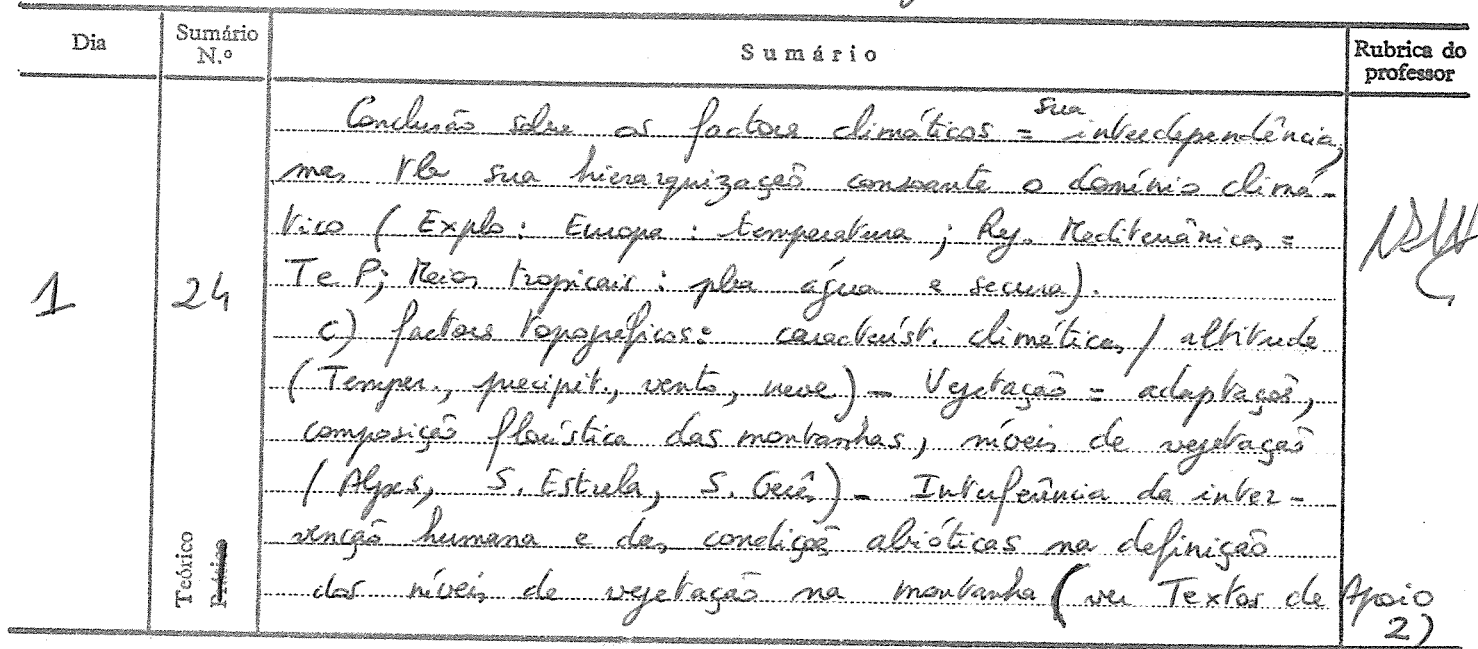 Dia
Sumário N.º
Sumário
Rubrica do professor
1
24
Conclusão sobre os factores climáticos = sua interdependência,
mas sua hierarquização consoante o domínio climá-
tico (Explo: Europa: temperatura; Reg. Mediterrânicas =
T e P; Meios tropicais: água e secura).
c) factores topográficos: característ. climáticas / altitude
(Temper., precipit., vento, neve) - Vegetação = adaptação,
composição florística das montanhas, níveis de vegetação
(Alpes, S. Estrela, S. Gerês) - Interferência da inter-
venção humana e das condições abióticas na definição
dos níveis de vegetação na montanha (ver Textos de Apoio
2)
Teórico
Prático